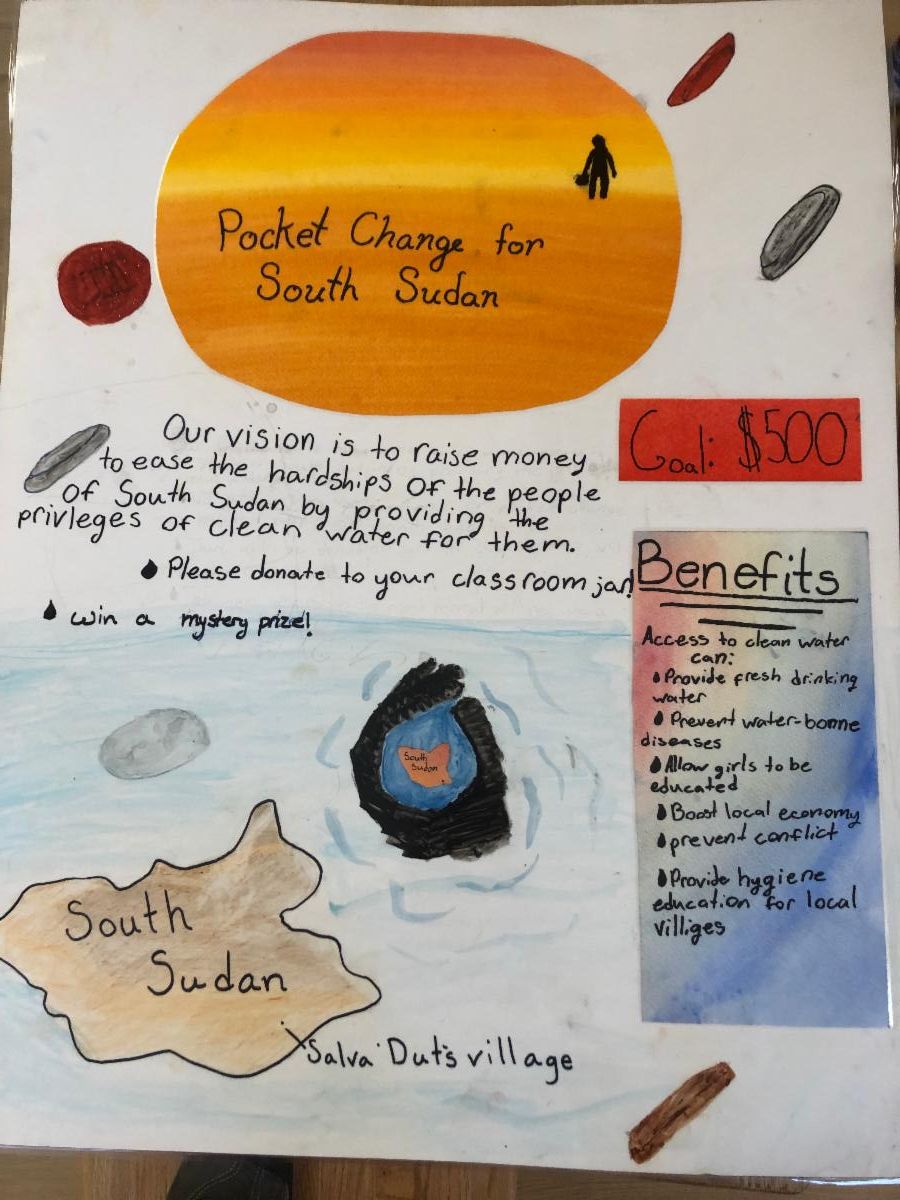 Pocket Change for
South Sudan
Goal: $500
Our vision is to raise money
to ease the hardships of the people
of South Sudan by providing the
privleges of clean water for them.
Please donate to your classroom jar!
win a mystery prize!
Benefits
Access to clean water
can:
Provide fresh drinking
water
Prevent water-borne
diseases
Allow girls to be
educated
Boost local economy
prevent conflict
Provide hygiene
education for local
villiges
South
Sudan
South
Sudan
Salva Dut's village